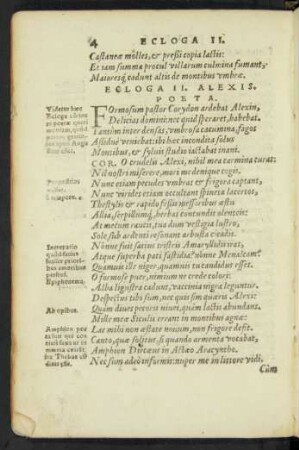 4 ECLOGA II.
Castaneæ molles, & pressi copia lactis:
Et iam summa procul villarum culmina fumant,
Maioresq́; cadunt altis de montibus vmbræ.
ECLOGA II. ALEXIS.
POETA.
FOrmosum pastor Corydon ardebat Alexin,
Delicias domini: nec quid speraret, habebat.
Tantùm inter densas, vmbrosa cacumina, fagos
Assiduè veniebat: ibi hæc incondita solus
Montibus, & syluis studio iactabat inani.
COR. O crudelis Alexi, nihil mea carmina curas:
Nil nostri miserere, mori me denique coges.
Nunc etiam pecudes vmbras & frigora captant,
Nunc virides etiam occultant spineta lacertos,
Thestylis & rapido fessis messoribus æstu
Allia, serpillumq́;, herbas contundit olentes:
At mecum raucis, tua dum vestigia lustro,
Sole sub ardenti resonant arbusta cicadis.
Nónne fuit satius tristeis Amaryllidis iras,
Atque superba pati fastidia? nónne Menalcam?
Quamuis ille niger, quamuis tu candidus esses.
O formose puer, nimium ne crede colori.
Alba ligustra cadunt, vaccinia nigra leguntur.
Despectus tibi sum, nec quis sim quæris Alexi:
Quàm diues pecoris niuei, quàm lactis abundans.
Mille meæ Siculis errant in montibus agnæ:
Lac mihi non æstate nouum, non frigore defit.
Canto, quæ solitus, si quando armenta vocabat,
Amphion Dircæus in Actæo Aracyntho.
Nec sum adeò informis: nuper me in littore vidi,
Cùm
Ab opibus.